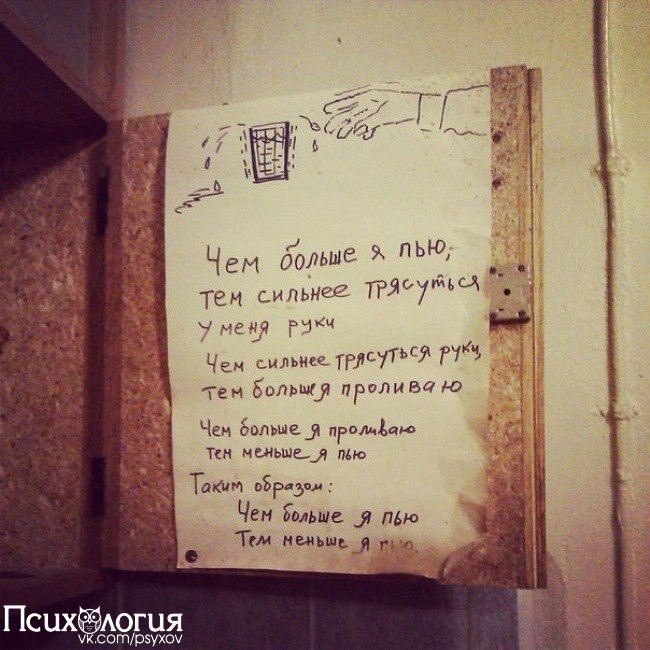 Чем больше я пью,
тем сильнее трясуться
у меня руки
Чем сильнее трясуться руки,
тем больше я проливаю
Чем больше я проливаю
тем меньше я пью
Таким образом:
Чем больше я пью
Тем меньше я пью.
Психология
vk.com/psyxov